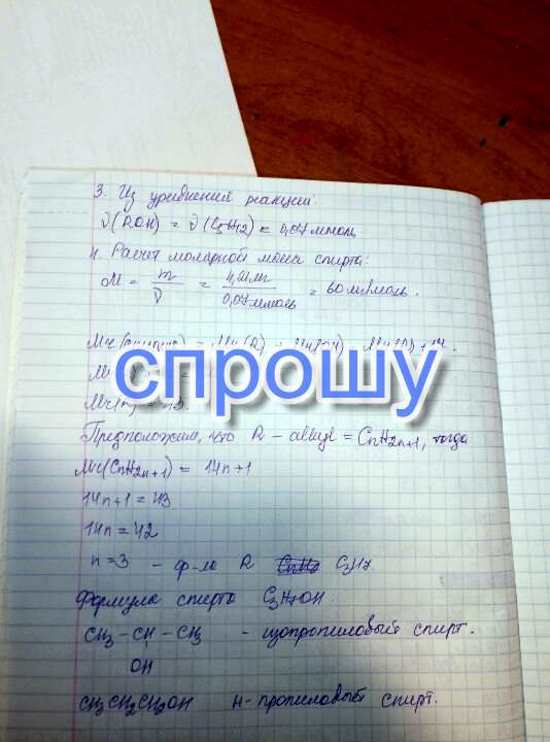 3. Из уравнения реакции
ν(ROH) = ν(C5H12) = 0,07 ммоль
4. Расчёт молярной массы спирта:
M = m/ν = 4,2 мг/0,07 ммоль = 60 мг/ммоль.
спрошу
Предположим, что R – alkyl = CnH2n+1, тогда
Mr(CnH2n+1) = 14n+1
14n+1 = 43
14n = 42
n = 3 – ф-ла R C3H7
Формула спирта C3H7OH
CH3 – CH – CH3 - изопропиловый спирт.
OH
CH3CH2CH2OH н-пропиловый спирт.